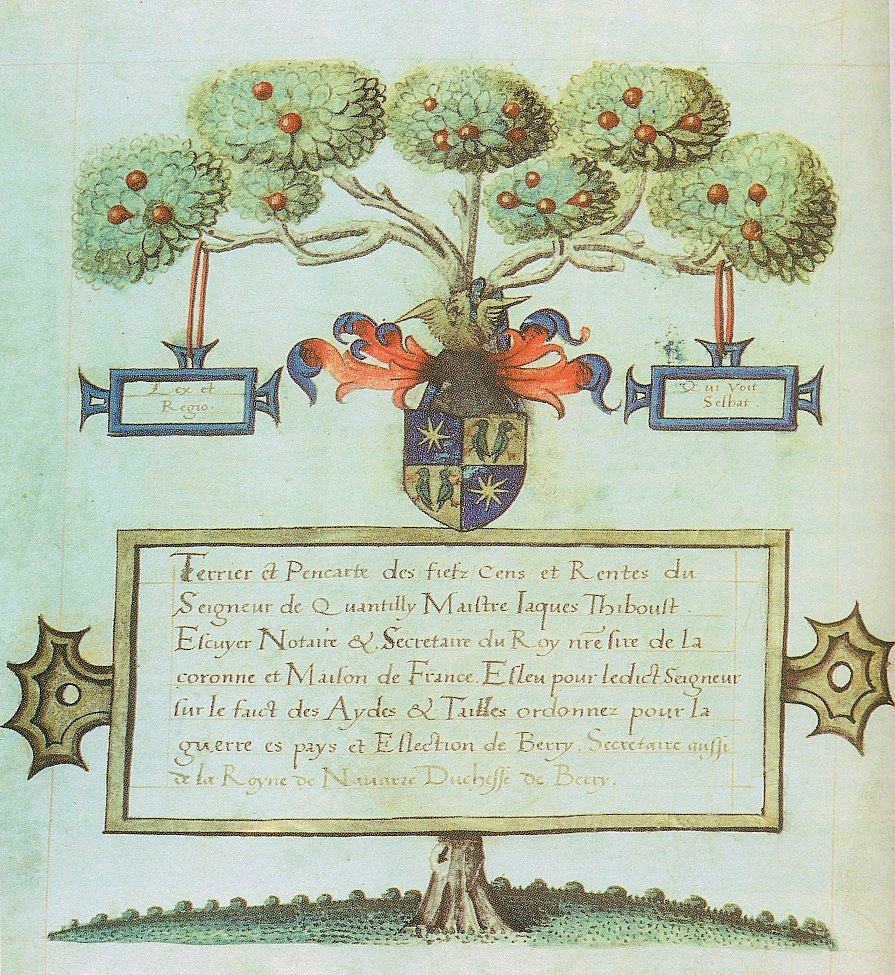 Lex et
Regio.
Qui Voit
Sesbat.
Terrier et Pencarte des fiefz Cens et Rentes du
Seigneur de Quantilly Maistre Iaques Thiboust.
Escuyer Notaire & Secretaire du Roy nr̃e sire de la
coronne et Maison de France. Esleu pour ledict Seigneur
sur le faict des Aydes & Tailles ordonnez pour la
guerre es pays et Eslection de Berry. Secretaire aussi
de la Royne de Navarre Duchesse de Berry.